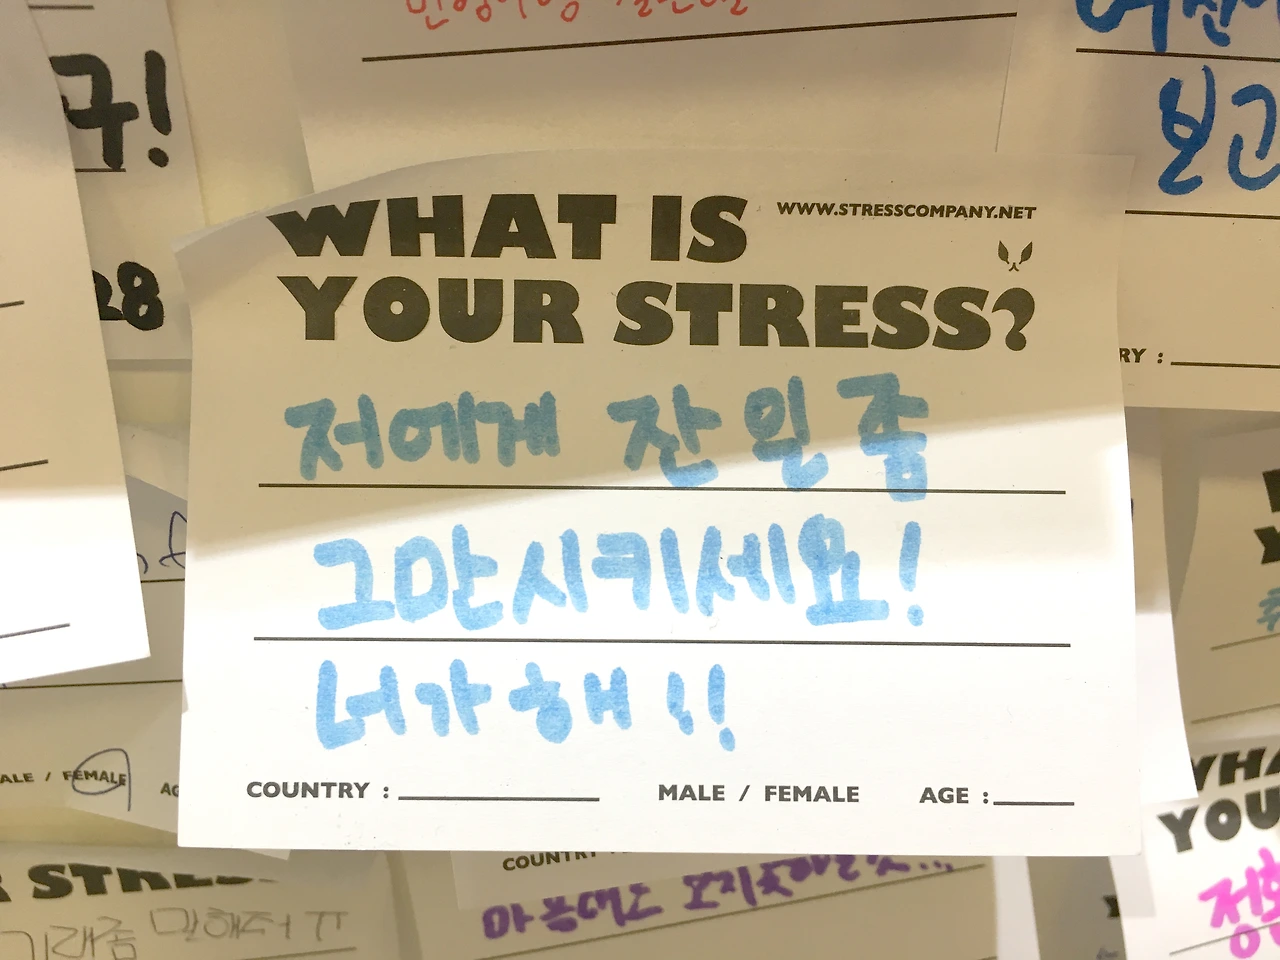 구!
28
보고
WHAT IS
WWW.STRESSCOMPANY.NET
YOUR STRESS?
저에게 잔 일 좀
그만시키세요!
너가 해!!
COUNTRY :
MALE / FEMALE
AGE :
RY :
ALE / FEMALE
AG
COUNTRY
WHA
YOU
말해줘 ㅠ
마음대로